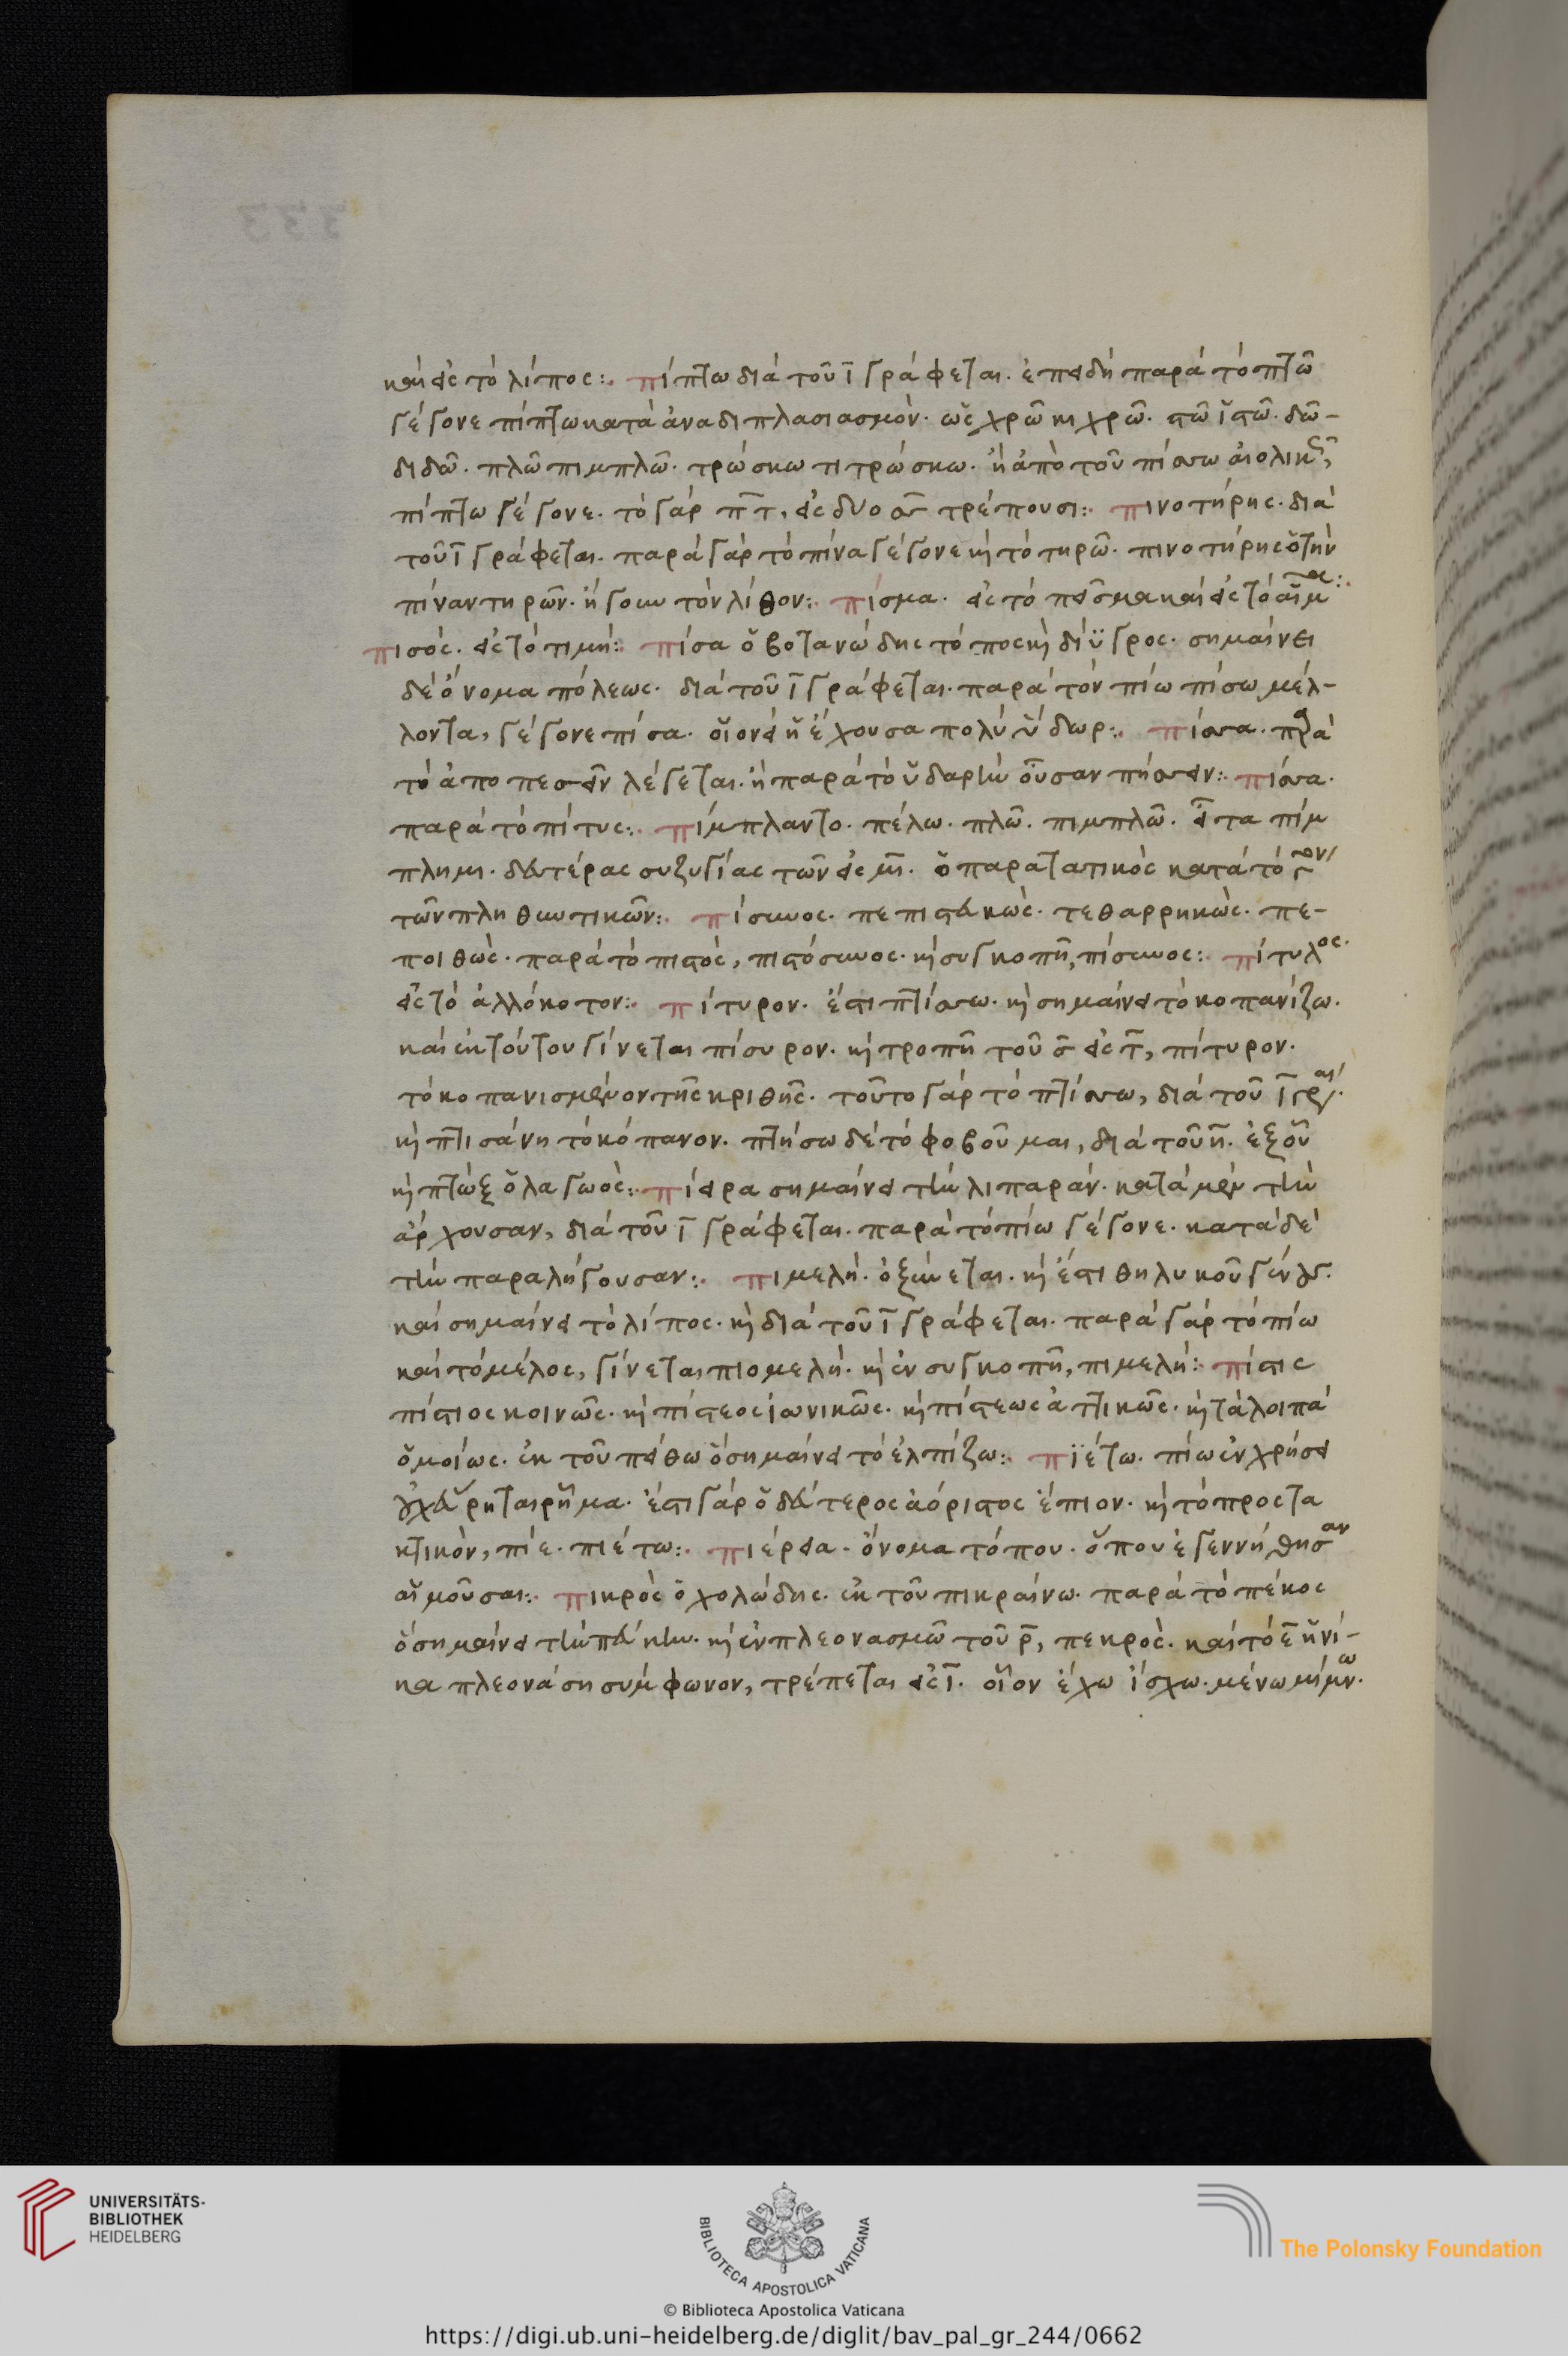 καὶ εἰς τὸ λίπος:. πίπτω διὰ τοῦ ῑ γράφεται. ἐπειδὴ παρὰ τὸ πτῶ
γέγονε πίπτω κατὰ ἀναδιπλασιασμόν. ὡς χρῶ κιχρῶ. στῶ ἱστῶ. δῶ-
διδῶ. πλῶ πιμπλῶ. τρώσκω τιτρώσκω. ἢ ἀπὸ τοῦ πίσσω αἰολικῶς,
πίπτω γέγονε. τὸ γὰρ π̄τ̄, εἰς δύο σσ̄ τρέπουσι:. πινοτήρης. διὰ
τοῦ ῑ γράφεται. παρὰ γὰρ τὸ πίνα γέγονε κὴ τὸ τηρῶ. πινοτήρης ὁ τὴν
πίναν τηρῶν. ἤγουν τὸν λίθον:. πίσμα. εἰς τὸ πεῖσμα καὶ εἰς τὸ αἷμος:.
πισός. εἰς τὸ τιμή:. πίσα ὁ βοτανώδης τόπος κὴ δίϋγρος. σημαίνει
δὲ ὄνομα πόλεως. διὰ τοῦ ῑ γράφεται. παρὰ τὸν πίω πίσω μέλ-
λοντα, γέγονε πίσα. οἱονεὶ ἡ ἔχουσα πολὺ ὕδωρ:. πίσσα. παρὰ
τὸ ἀποπεσεῖν λέγεται. ἢ παρὰ τὸ ὑδαρὴν οὖσαν πήσσειν:. πίσσα.
παρὰ τὸ πίτυς:. πίμπλαντο. πέλω. πλῶ. πιμπλῶ. εἶτα πίμ
πλημι. δευτέρας συζυγίας τῶν εἰς μῑ. ὁ παρατατικὸς κατὰ τὸ γον
τῶν πληθυντικῶν:. πίσυνος. πεπιστευκώς. τεθαρρηκώς. πε-
ποιθώς. παρὰ τὸ πιστός, πιστόσυνος. κὴ συγκοπῆ, πίσυνος:. πίτυλος.
εἰς τὸ ἀλλόκοτον:. πίτυρον. ἔστι πτίσσω. κὴ σημαίνει τὸ κοπανίζω.
καὶ ἐκ τούτου γίνεται πίσυρον. κὴ τροπῆ τοῦ σ̄ εἰς τ̄, πίτυρον.
τὸ κοπανισμένον τῆς κριθῆς. τοῦτο γὰρ τὸ πτίσσω, διὰ τοῦ ῑ γράφεται.
κὴ πτισάνη τὸ κόπανον. πτήσω δὲ τὸ φοβοῦμαι, διὰ τοῦ η̄. ἐξ οὗ
κὴ πτὼξ ὁ λαγωός:. πίειρα σημαίνει τὴν λιπαράν. κατὰ μὲν τὴν
ἄρχουσαν, διὰ τοῦ ῑ γράφεται. παρὰ τὸ πίω γέγονε. κατὰ δὲ
τὴν παραλήγουσαν:. πιμελή. ὀξύνεται. κὴ ἔστι θηλυκοῦ γένους.
καὶ σημαίνει τὸ λίπος. κὴ διὰ τοῦ ῑ γράφεται. παρὰ γὰρ τὸ πίω
καὶ τὸ μέλος, γίνεται πιομελή. κὴ ἐν συγκοπῆ, πιμελή:. πίστις
πίστιος κοινῶς. κὴ πίστεος ἰωνικῶς. κὴ πίστεως ἀττικῶς. κὴ τὰ λοιπὰ
ὁμοίως. ἐκ τοῦ πείθω ὃ σημαίνει τὸ ἐλπίζω:. πϊέτω. πίω ἐν χρήσει
οὐχ εὕρηται ῥῆμα. ἔστι γὰρ ὁ δεύτερος ἀόριστος ἔπιον. κὴ τὸ προστα
κτικόν, πίε. πιέτω:. πιέρεια. ὄνομα τόπου. ὅπου ἐγεννήθησαν
αἱ μοῦσαι:. πικρὸς ὁ χολώδης. ἐκ τοῦ πικραίνω. παρὰ τὸ πέκος
ὃ σημαίνει τὴν πεύκην. κὴ ἐν πλεονασμῶ τοῦ ρ̄, πεκρός. καὶ τὸ ε̄ ἡνί-
κα πλεονάση σύμφωνον, τρέπεται εἰς ῑ. οἷον ἔχω ἴσχω. μένω μίμνω.
UNIVERSITÄTS-
BIBLIOTHEK
HEIDELBERG
BIBLIOTECA APOSTOLICA VATICANA
The Polonsky Foundation
© Biblioteca Apostolica Vaticana
https://digi.ub.uni-heidelberg.de/diglit/bav_pal_gr_244/0662